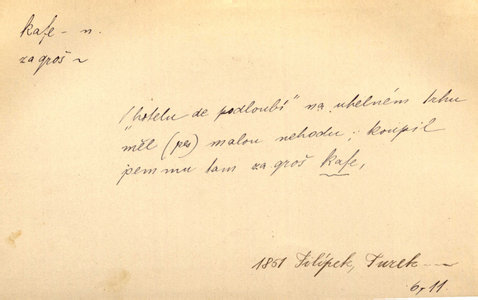 kafe - n.
za groš ~
V "hotelu de podloubí" na uhelném trhu
měl (pes) malou nehodu; koupil
jsem mu tam za groš kafe,
1851 Filípek, Turek
6, 11.